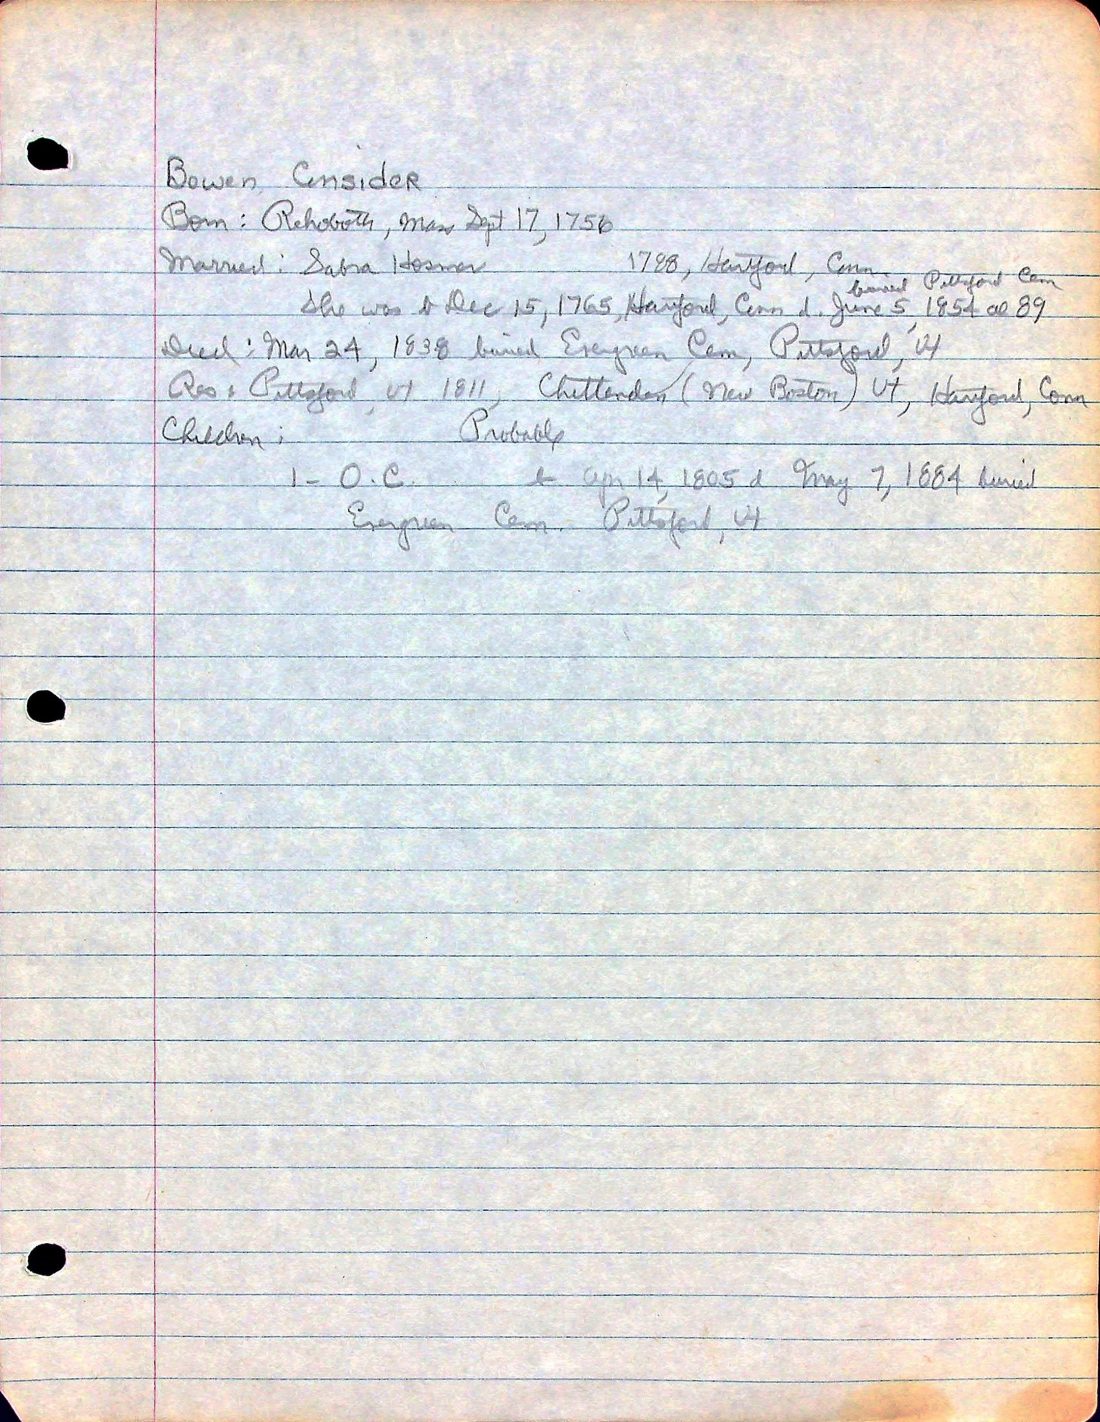 Bowen, Consider
Born: Rehoboth, Mass Sept 17, 1756
Married: Sabra Hosmer 1788, Hartford, Conn.
buried Pittsford Cem
She was b Dec 15, 1765, Hartford, Conn d. June 5, 1854 ae 89
Died: Mar 24, 1838 buried Evergreen Cem, Pittsford, Vt
Res: Pittsford, Vt 1811, Chittenden (New Boston) Vt, Hartford, Conn
Children: Probable
1- O.C. b Apr 14, 1805 d May 7, 1884 buried
Evergreen Cem. Pittsford, Vt